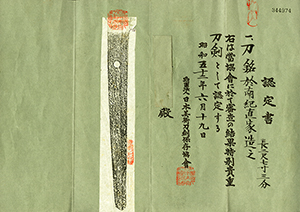 344974
認定書
一、刀 銘 於南紀直家造之
長 二尺二寸三分
右は當協會に於て審査の結果特別貴重
刀劍として認定する
昭和五十三年六月十九日
財團法人日本美術刀劍保存協會
殿